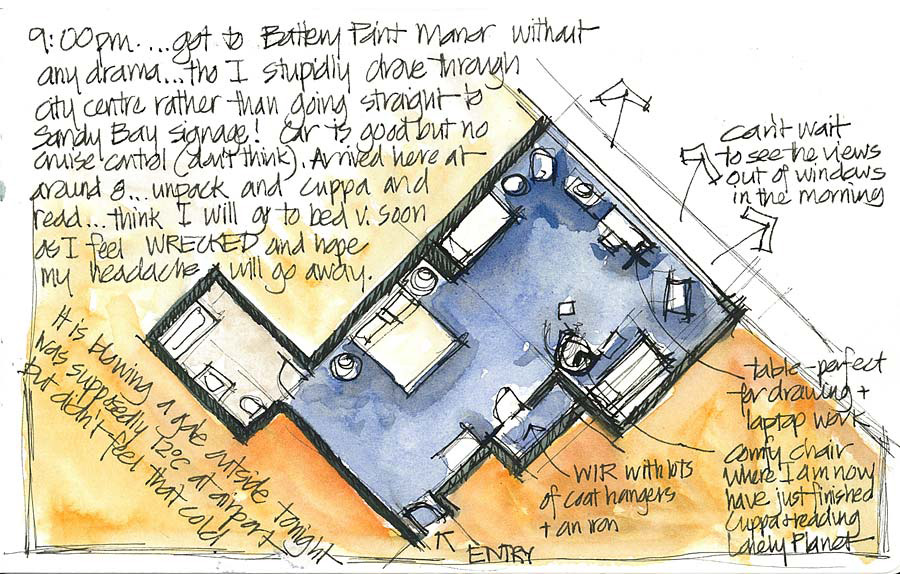 9:00pm....got to Battery Point Manor without
any drama...tho I stupidly drove through
city centre rather than going straight to
Sandy Bay signage! Car is good but no
cruise control (don't think). Arrived here at
around 8... unpack and cuppa and
read...think I will go to bed v. soon
as I feel WRECKED and hope
my headache will go away.
can't wait
to see the views
out of windows
in the morning
It is blowing a gale outside tonight
Was supposedly 12°C at airport,
but didn't feel that cold
table - perfect
for drawing +
laptop work
comfy chair
where I am now
have just finished
cuppa + reading
Lonely Planet
WIR with lots
of coat hangers
+ an iron
ENTRY